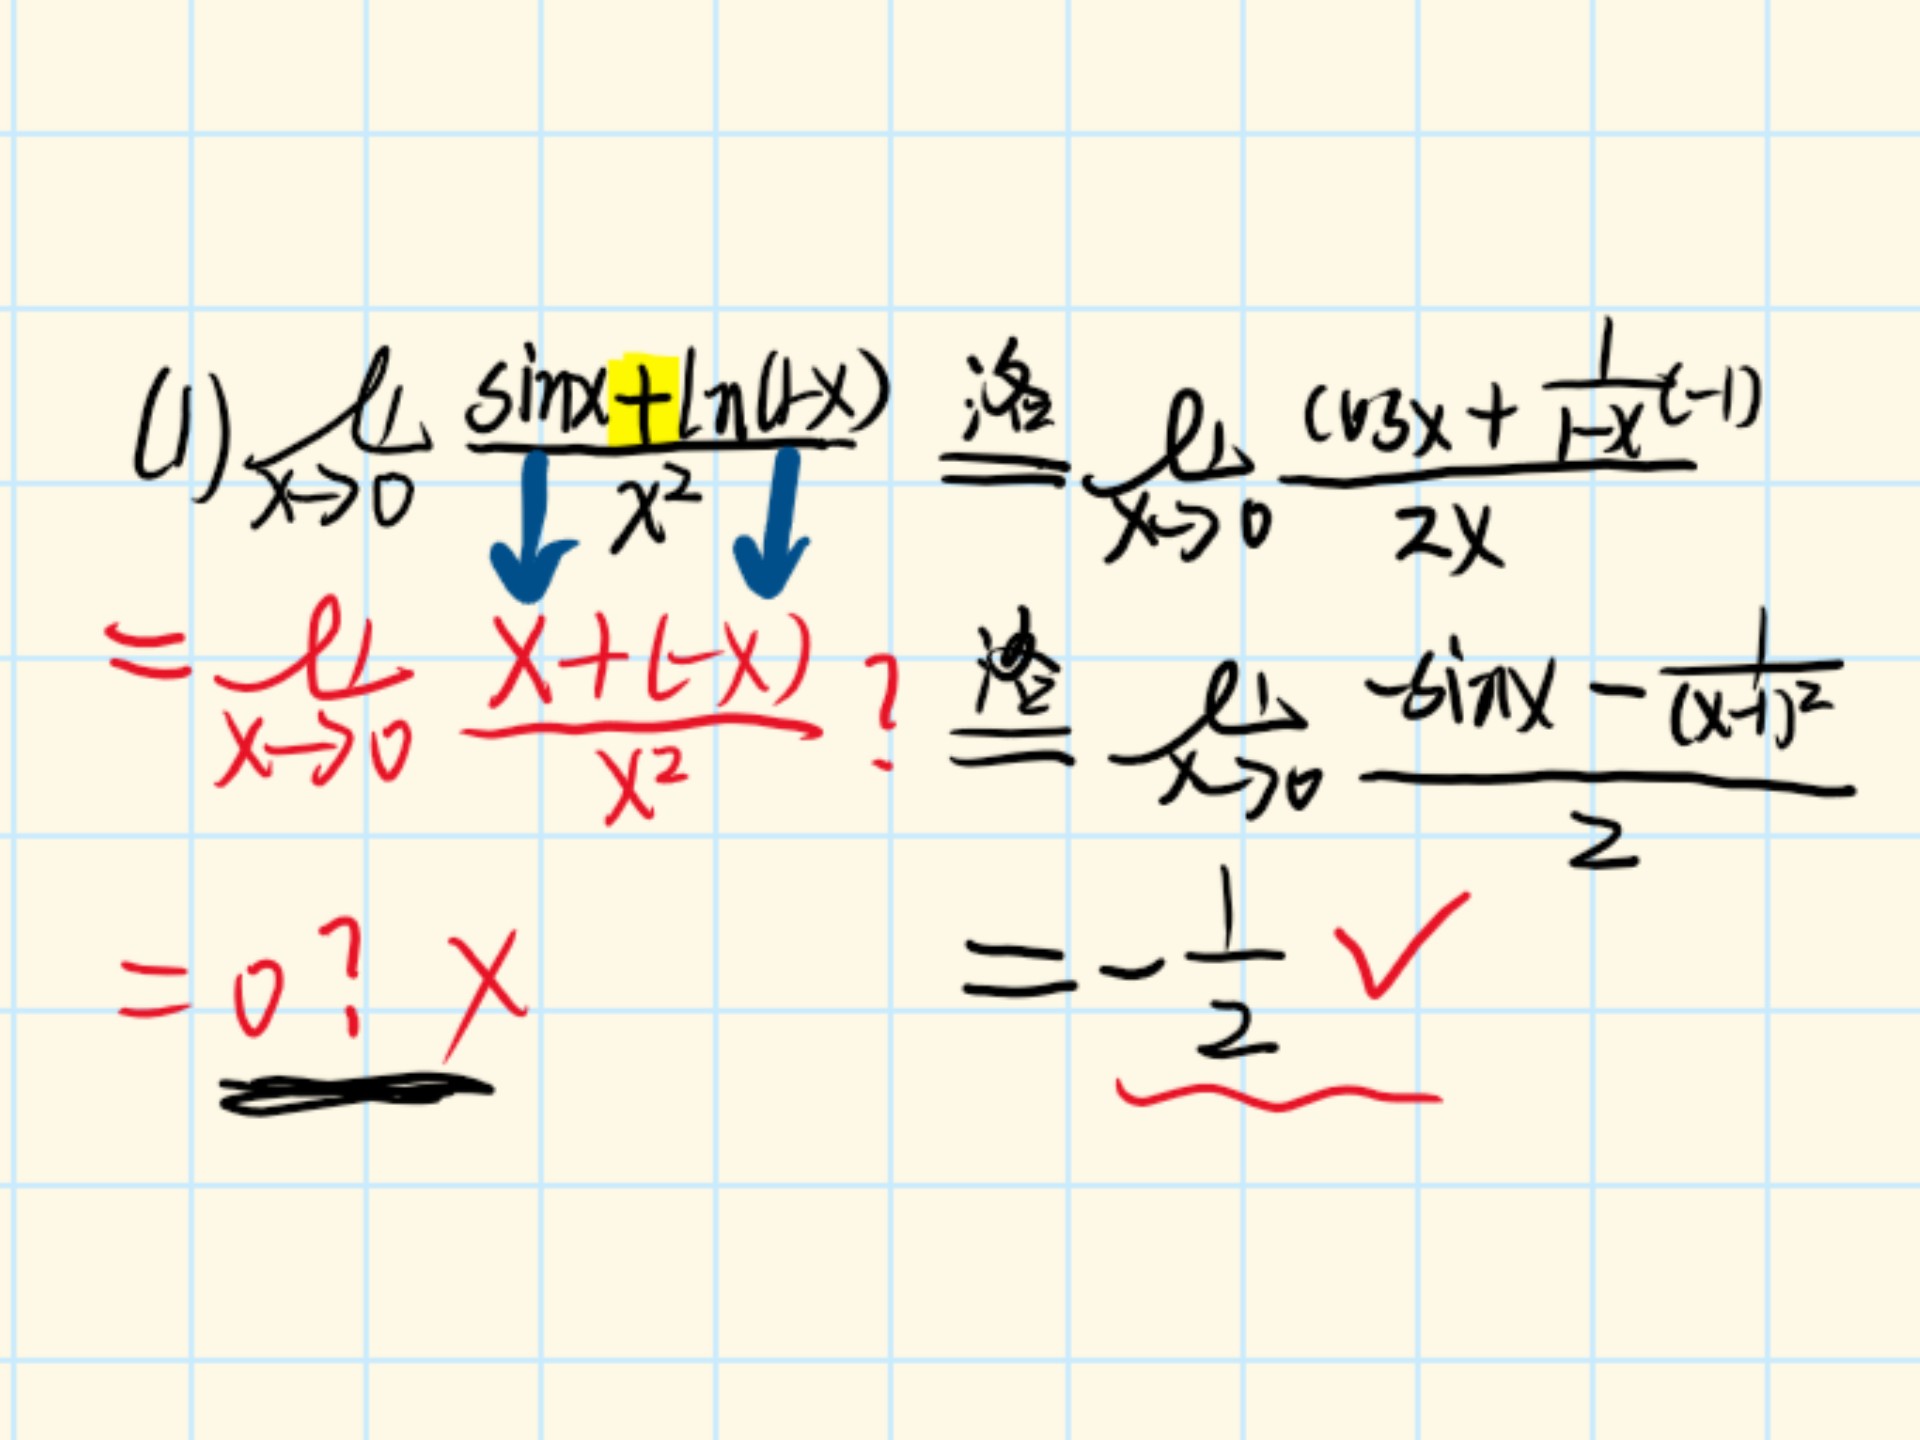 (1) lim x→0 (sinx+ln(1-x))/x² 洛 = lim x→0 (cosx + 1/(1-x) (-1))/2x
= lim x→0 (x+(-x))/x² ? 洛 = lim x→0 (-sinx - 1/(x-1)²)/2
= 0? ✗ = -1/2 ✓